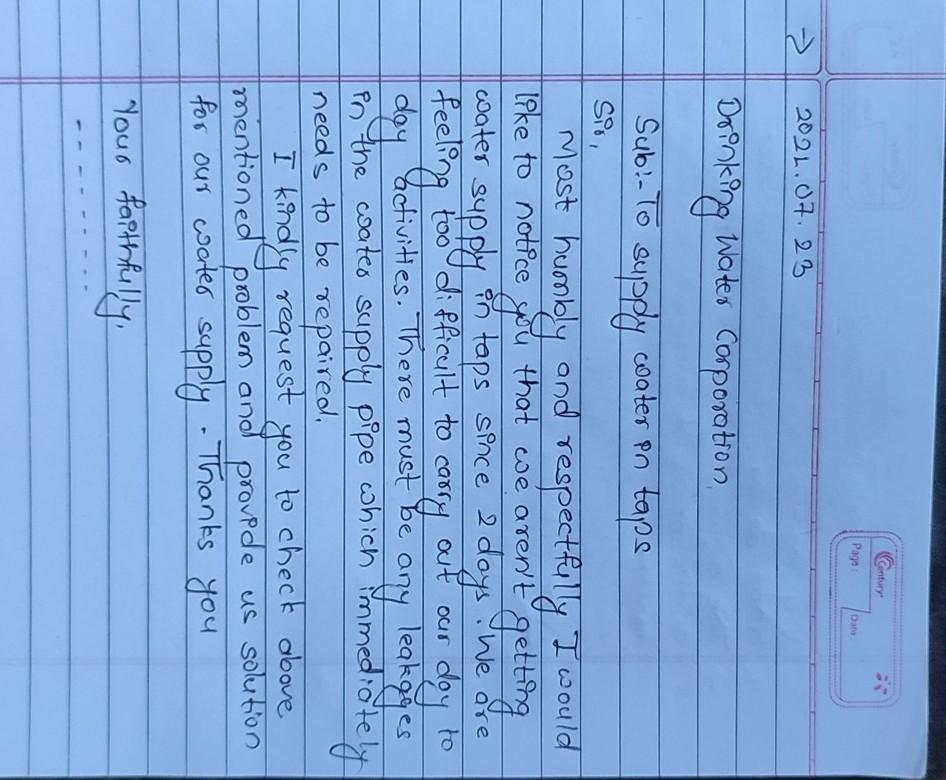 Century
Page:
Date:
→ 2021.07.23
Drinking Water Corporation,
Sub:- To supply water in taps
Sir,
Most humbly and respectfully I would
like to notice you that we aren't getting
water supply in taps since 2 days. We are
feeling too difficult to carry out our day to
day activities. There must be any leakages
in the water supply pipe which immediately
needs to be repaired.
I kindly request you to check above
mentioned problem and provide us solution
for our water supply. Thanks you
Your faithfully,
- - - - - - - -